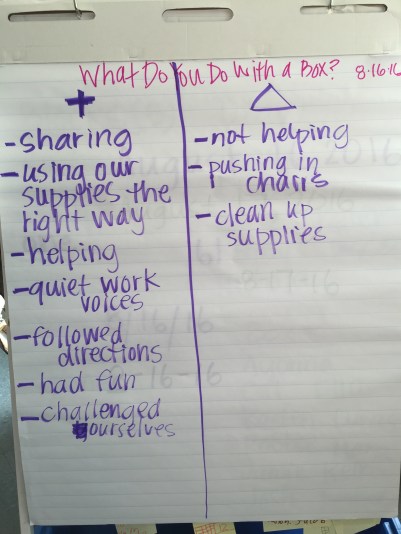 What Do You Do With a Box? 8-16-16
+
-sharing
-using our
supplies the
right way
-helping
-quiet work
voices
-followed
directions
-had fun
-challenged
ourselves
△
-not helping
-pushing in
chairs
-clean up
supplies